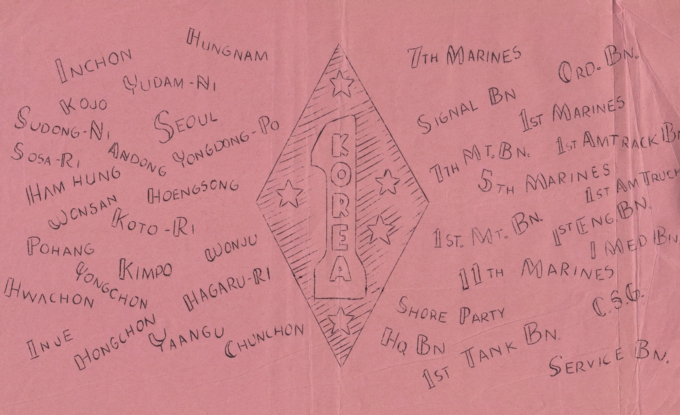 INCHON
HUNGNAM
YUDAM-NI
KOJO
SUDONG-NI
SEOUL
SOSA-RI
ANDONG
YONGDONG-PO
HAM HUNG
HOENGSONG
WONSAN
KOTO-RI
POHANG
WONJU
YONGCHON
KIMPO
HWACHON
HAGARU-RI
INJE
HONGCHON
YAANGU
CHUNCHON
KOREA
7TH MARINES
ORD. BN.
SIGNAL BN
1ST MARINES
7TH MT. BN.
1ST AMTRACK BN
5TH MARINES
1ST AMTRUCK
1ST. MT. BN.
1ST ENG. BN.
1 MED BN
11TH MARINES
SHORE PARTY
C.S.G.
HQ BN
1ST TANK BN.
SERVICE BN.